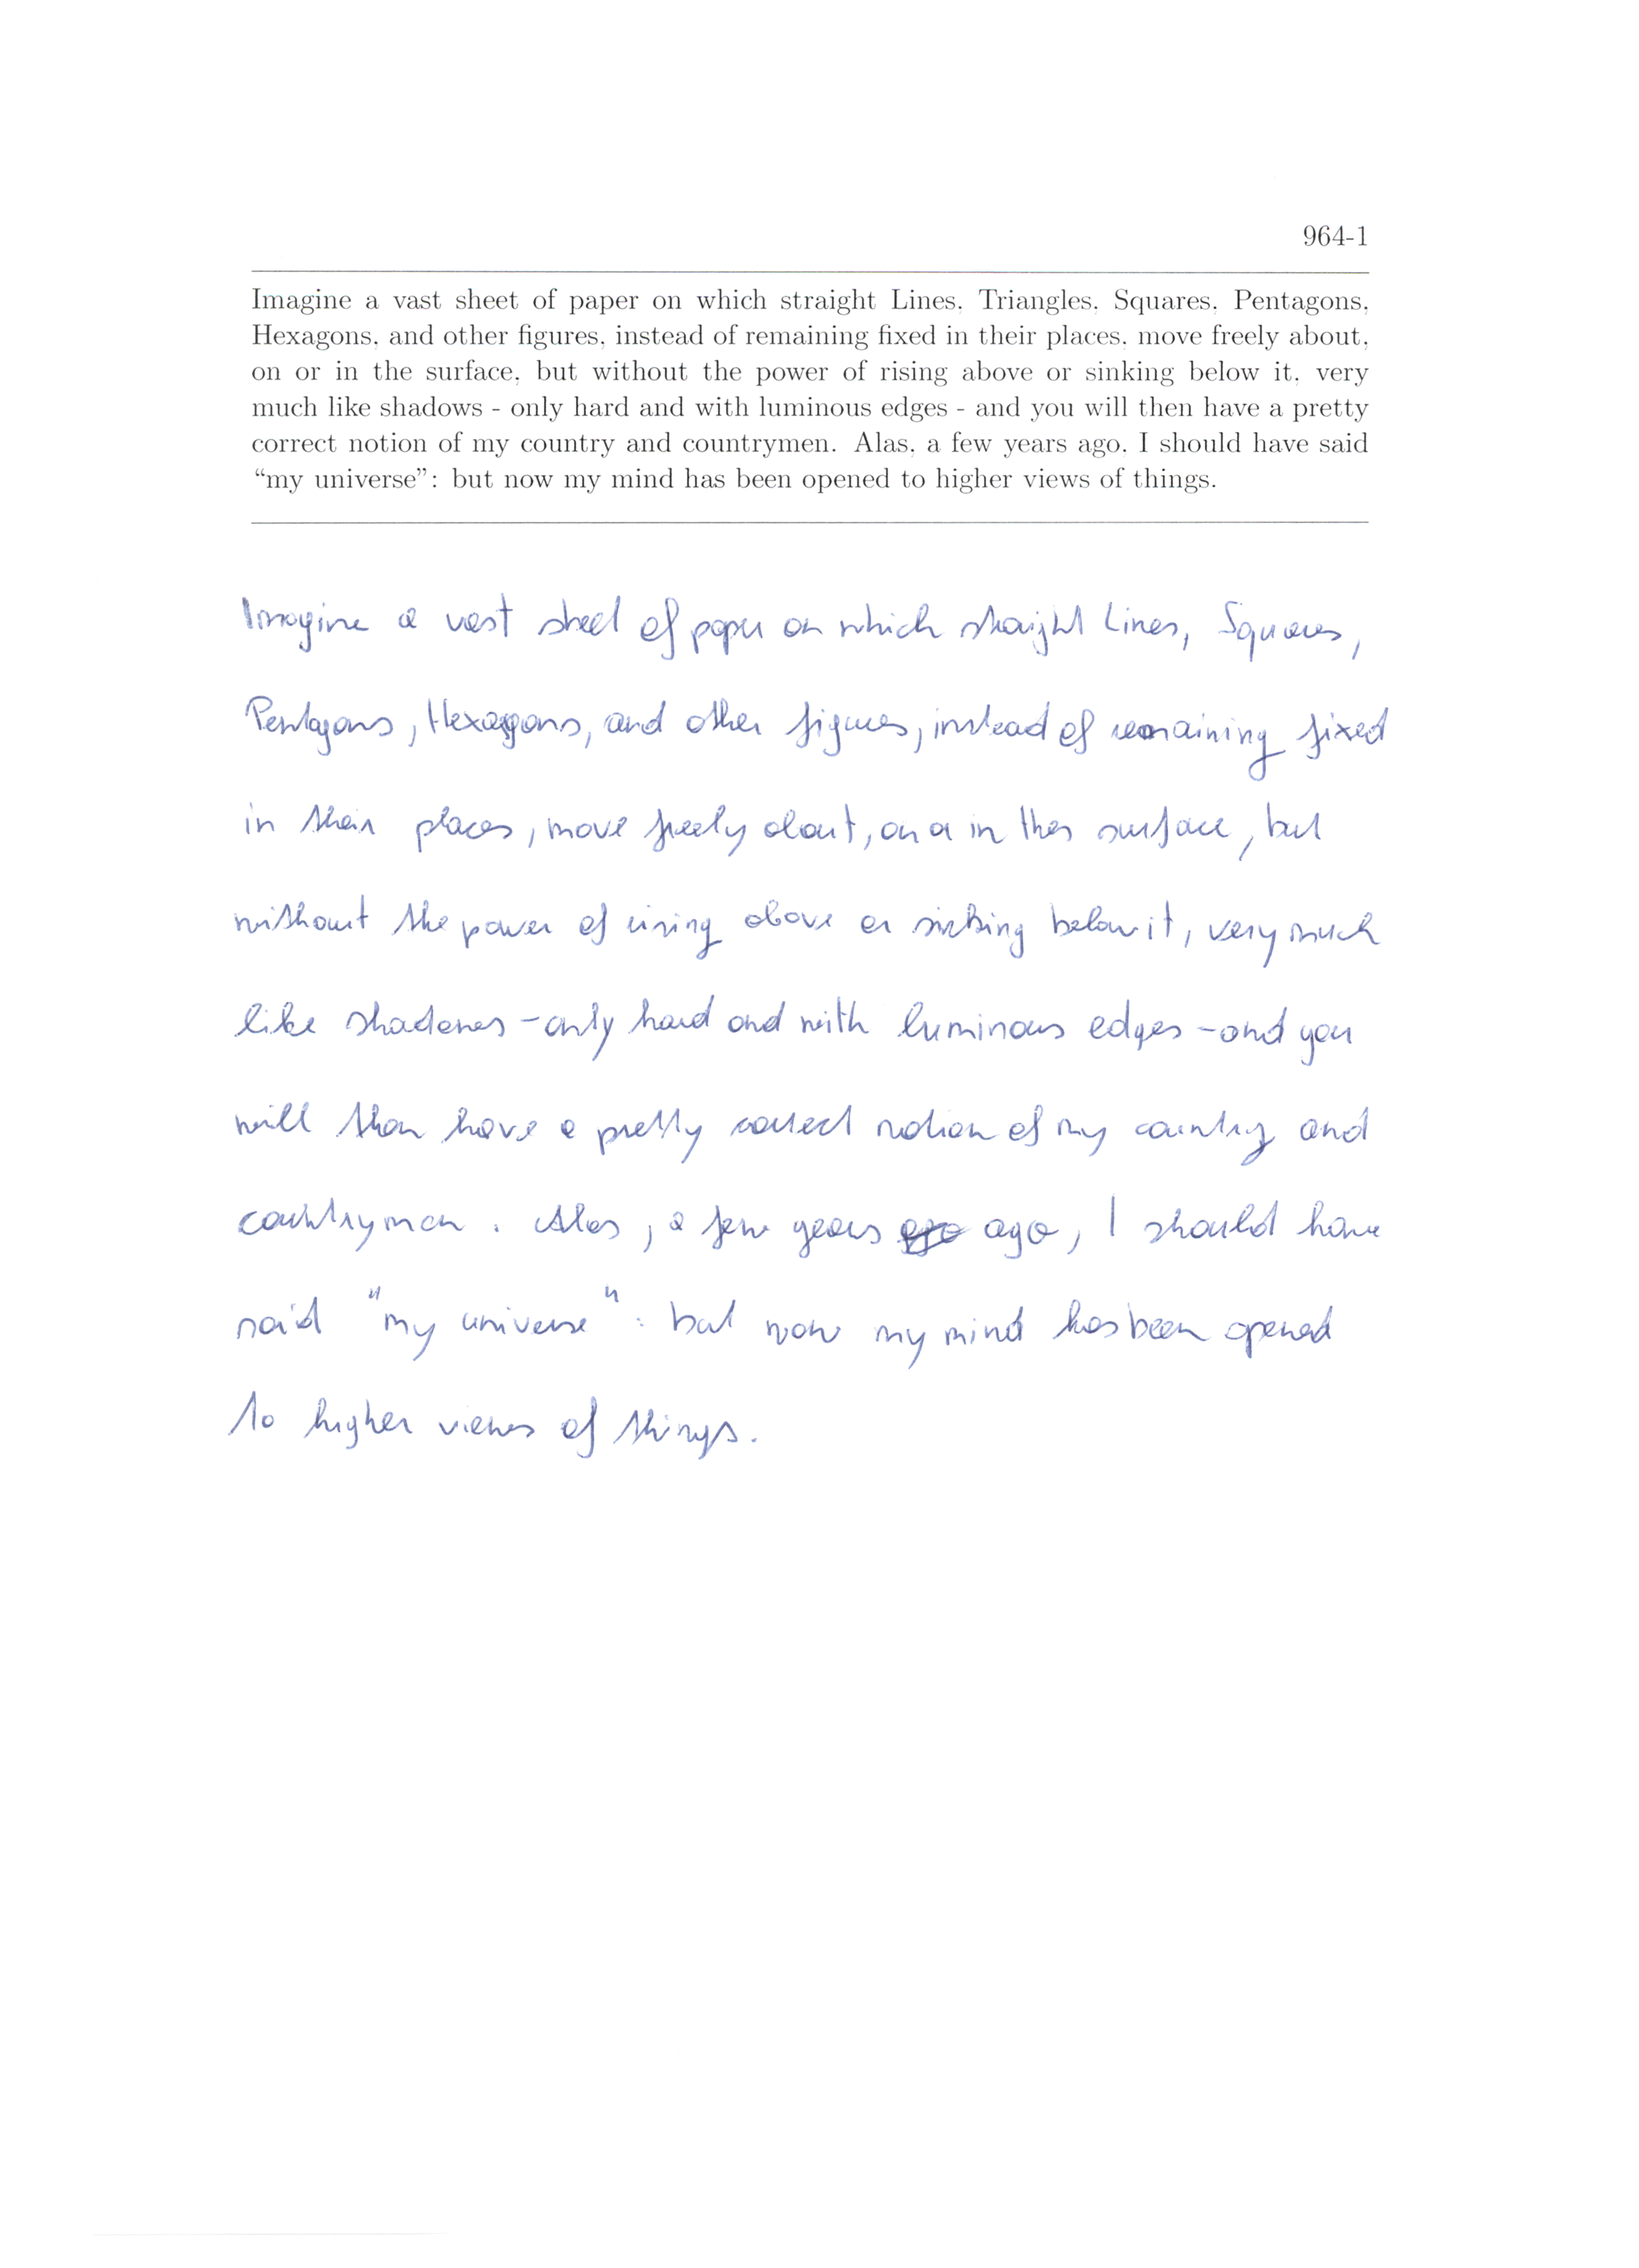 964-1
Imagine a vast sheet of paper on which straight Lines, Triangles, Squares, Pentagons,
Hexagons, and other figures, instead of remaining fixed in their places, move freely about,
on or in the surface, but without the power of rising above or sinking below it, very
much like shadows - only hard and with luminous edges - and you will then have a pretty
correct notion of my country and countrymen. Alas, a few years ago, I should have said
“my universe”: but now my mind has been opened to higher views of things.
Imagine a vast sheet of paper on which straight Lines, Squares,
Pentagons, Hexagons, and other figures, instead of remaining fixed
in their places, move freely about, on or in thes surface, but
without the power of rising above or sinking below it, very much
like shadows - only hard and with luminous edges - and you
will then have a pretty correct notion of my country and
countrymen. Alas, a few years ago, I should have
said "my universe": but now my mind has been opened
to higher views of things.